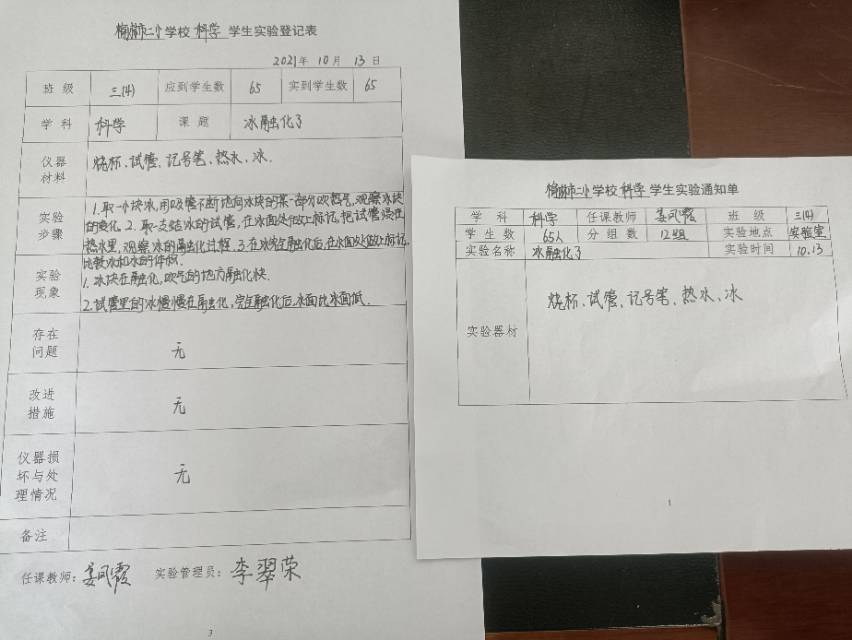 二小学校科学学生实验登记表
2021年10月13日
班级 三(4) 应到学生数 65 实到学生数 65
学科 科学 课题 冰融化了
仪器材料 烧杯、试管、记号笔、热水、冰.
实验步骤 1.取一小块冰,用吸管不断地向冰块的某一部分吹热气,观察冰块
的变化. 2.取一支结冰的试管,在冰面处做上标记,把试管浸在
热水里,观察冰的融化过程. 3.在冰完全融化后,在水面处做上标记,
比较冰和水的体积.
实验现象 1.冰块在融化,吹气的地方融化快.
2.试管里的冰慢慢在融化,完全融化后,水面比冰面低.
存在问题 无
改进措施 无
仪器损坏与处理情况 无
备注
任课教师:姜凤霞 实验管理员:李翠荣
3
二小学校科学学生实验通知单
学科 科学 任课教师 姜凤霞 班级 三(4)
学生数 65人 分组数 12组 实验地点 实验室
实验名称 冰融化了 实验时间 10.13
实验器材 烧杯、试管、记号笔、热水、冰
1